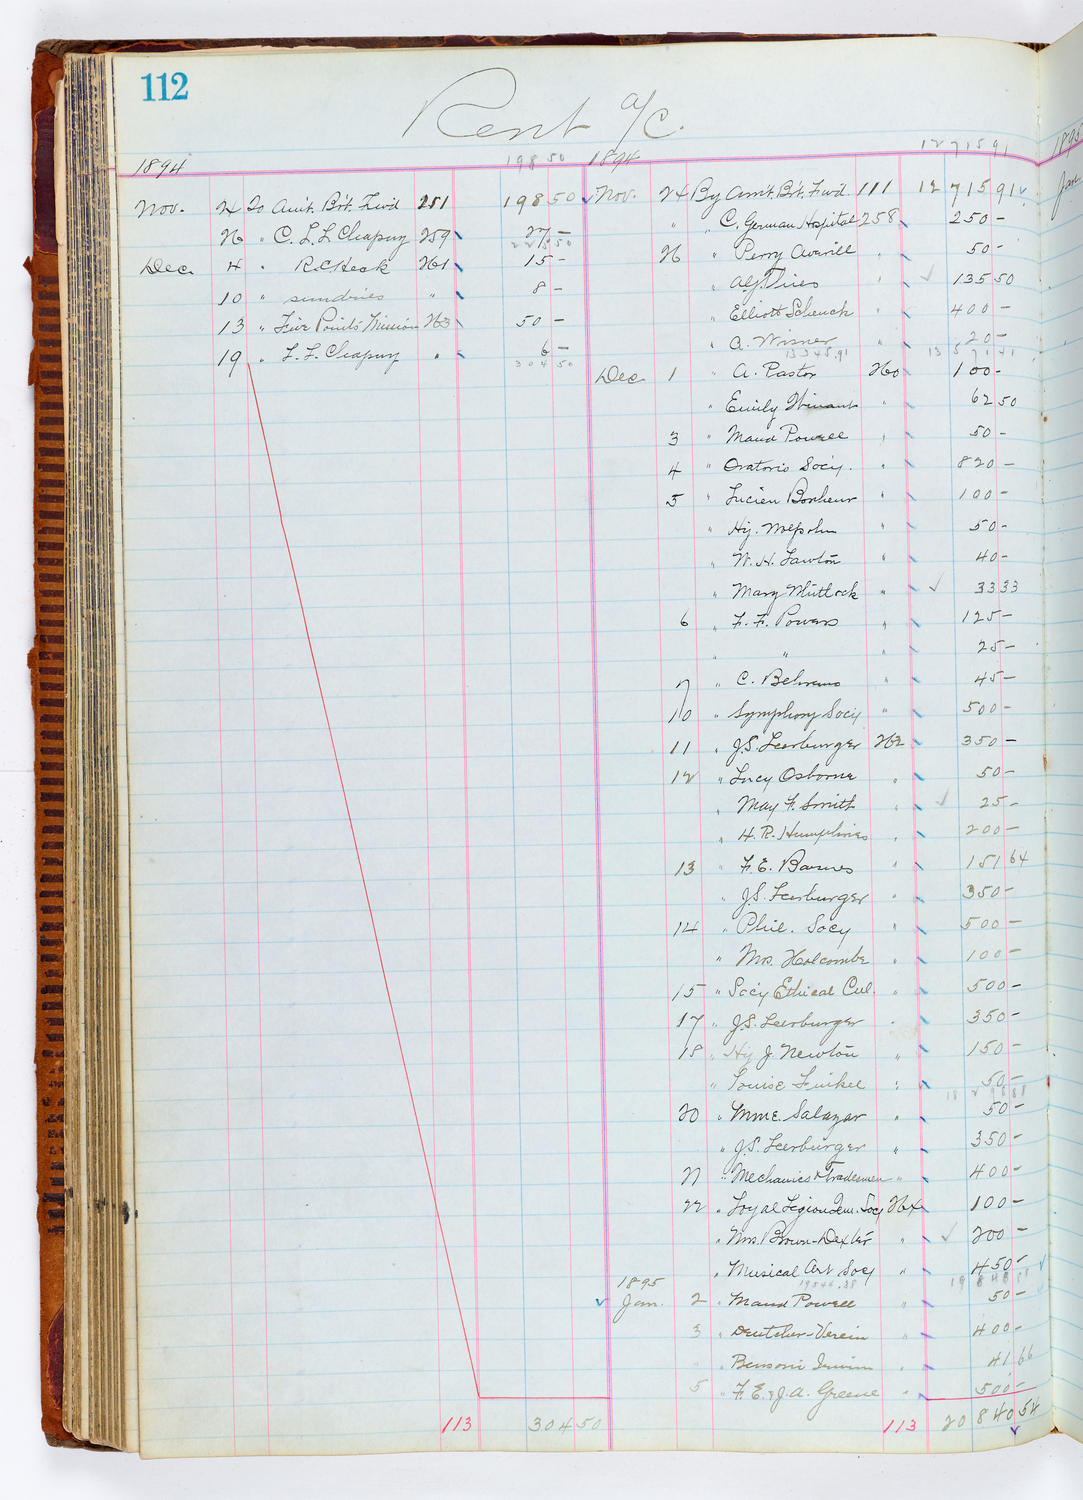 112
Rent a/c.
1894
198 50
Nov. 24 To Amt. Br't. Fwd 251 198 50
26 " C. L. L. Chapuy 259 27 -
225 50
Dec. 4 " R. C. Heck 261 15 -
10 " sundries " 8 -
13 " Five Points Mission 263 50 -
19 " L. L. Chapuy " 6 -
304 50
113 304 50
1894
12 715 91
Nov. 24 By Amt. Br't. Fwd. 111 12 715 91
" " C. German Hospital 258 250 -
26 " Perry Averill " 50 -
" 135 50
" Elliott Schenck " 400 -
" A. Wisner " 20 -
13 571 41
Dec. 1 " A. Pastor 260 100 -
" Emily Winant " 62 50
3 " Maud Powell " 50 -
4 " Oratorio Soc'y. " 820 -
5 " Lucien Bonheur " 100 -
" Hy. " 50 -
" W. H. Lawton " 40 -
" Mary " 33 33
6 " F. F. Powers " 125 -
" " " 25 -
7 " C. Behrens " 45 -
10 " Symphony Soc'y " 500 -
11 " J. S. Leerburger 262 350 -
12 " Lucy Osborne " 50 -
" May F. Smith " 25 -
" H. R. Humphries " 200 -
13 " F. E. Barnes " 151 64
" J. S. Leerburger " 350 -
14 " Phil. Socy " 500 -
" Mrs. Holcombe " 100 -
15 " Soc'y Ethical Cul. " 500 -
17 " J. S. Leerburger " 350 -
18 " Hy J. Newton " 150 -
" Louise Finkel " 50 -
20 " Mme. Salazar " 50 -
" J. S. Leerburger " 350 -
21 " Mechanics & Tradesmen " 400 -
22 " Loyal Legion Socy 264 100 -
" Mrs. Brown-Dexter " 200 -
" Musical Art Socy " 450 -
1895
Jan. 2 " Maud Powell " 50 -
3 " Deutcher-Verein " 400 -
" " 41 66
5 " F. E. & J. A. Greene " 500 -
113 20 840 54
1895
Jan